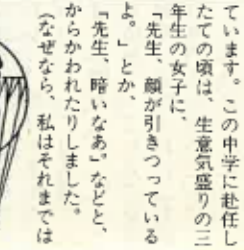 ています。この中学に赴任し
たての頃は、生意気盛りの三
年生の女子に、
「先生、顔が引きつっている
よ。」とか、
「先生、暗いなあ。」などと、
からかわれたりしました。
（なぜなら、私はそれまでは